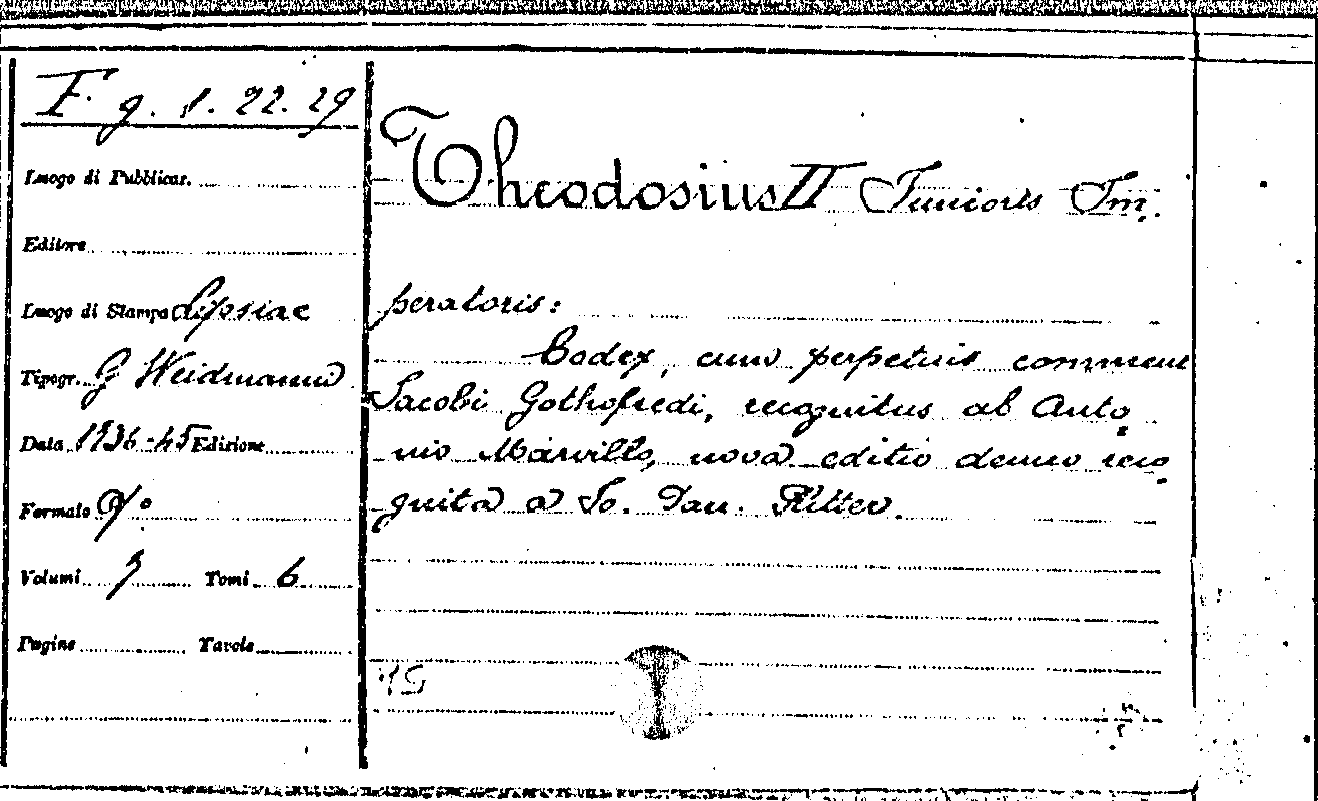 F. g. 1. 22. 29
Luogo di Pubblicaz.
Editore
Luogo di Stampa Lipsiae
Tipogr. G Weidmanni
Data 1736-45 Edizione
Formato f°
Volumi 7 Tomi 6
Pagine Tavole
Theodosius II Junioris Im,,
peratoris:
Codex, cum perpetuis comment
Jacobi Gothofredi, recognitus ab Anto,,
nio Marvillo, nova editio denuo reco,,
gnita a Jo. Dan. Ritter.
15